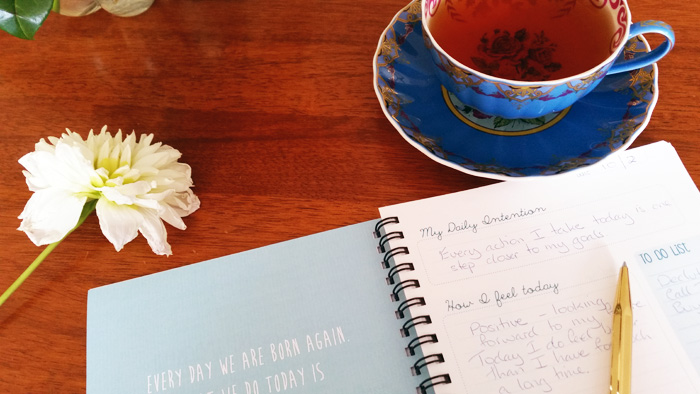 EVERY DAY WE ARE BORN AGAIN.
WE DO TODAY IS
My Daily Intention
Every action I take today is one
step closer to my goals
How I feel today
Positive - looking
forward to my
Today I do feel
than I have for
a long time.
TO DO LIST
Call